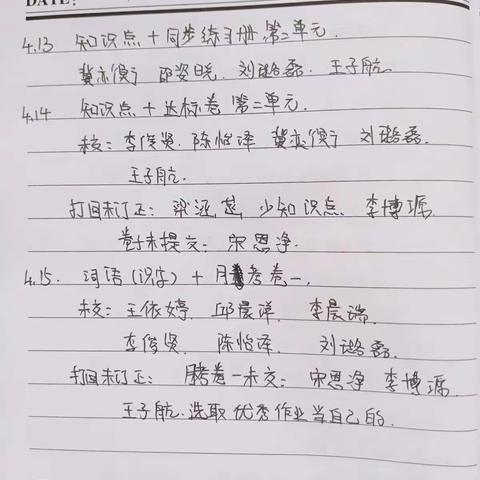 DATE:
4.13 知识点+同步练习册第二单元.
龚亦俣 邵姿晄. 刘璐磊. 王子航.
4.14 知识点+达标卷第二单元.
未核:李俊贤. 陈怡泽 龚亦俣 刘璐磊.
王子航.
打回未订正: 梁涵 少知识点. 李博
卷子未提交: 宋恩净.
4.15. 词语(识字)+月考卷一,
未交:王依婷. 邱晨洋. 李晨瑞.
李俊贤. 陈怡泽. 刘璐磊.
打回未订正: 月考卷一未交: 宋恩净 李博
王子航. 选取优秀作业当自己的.